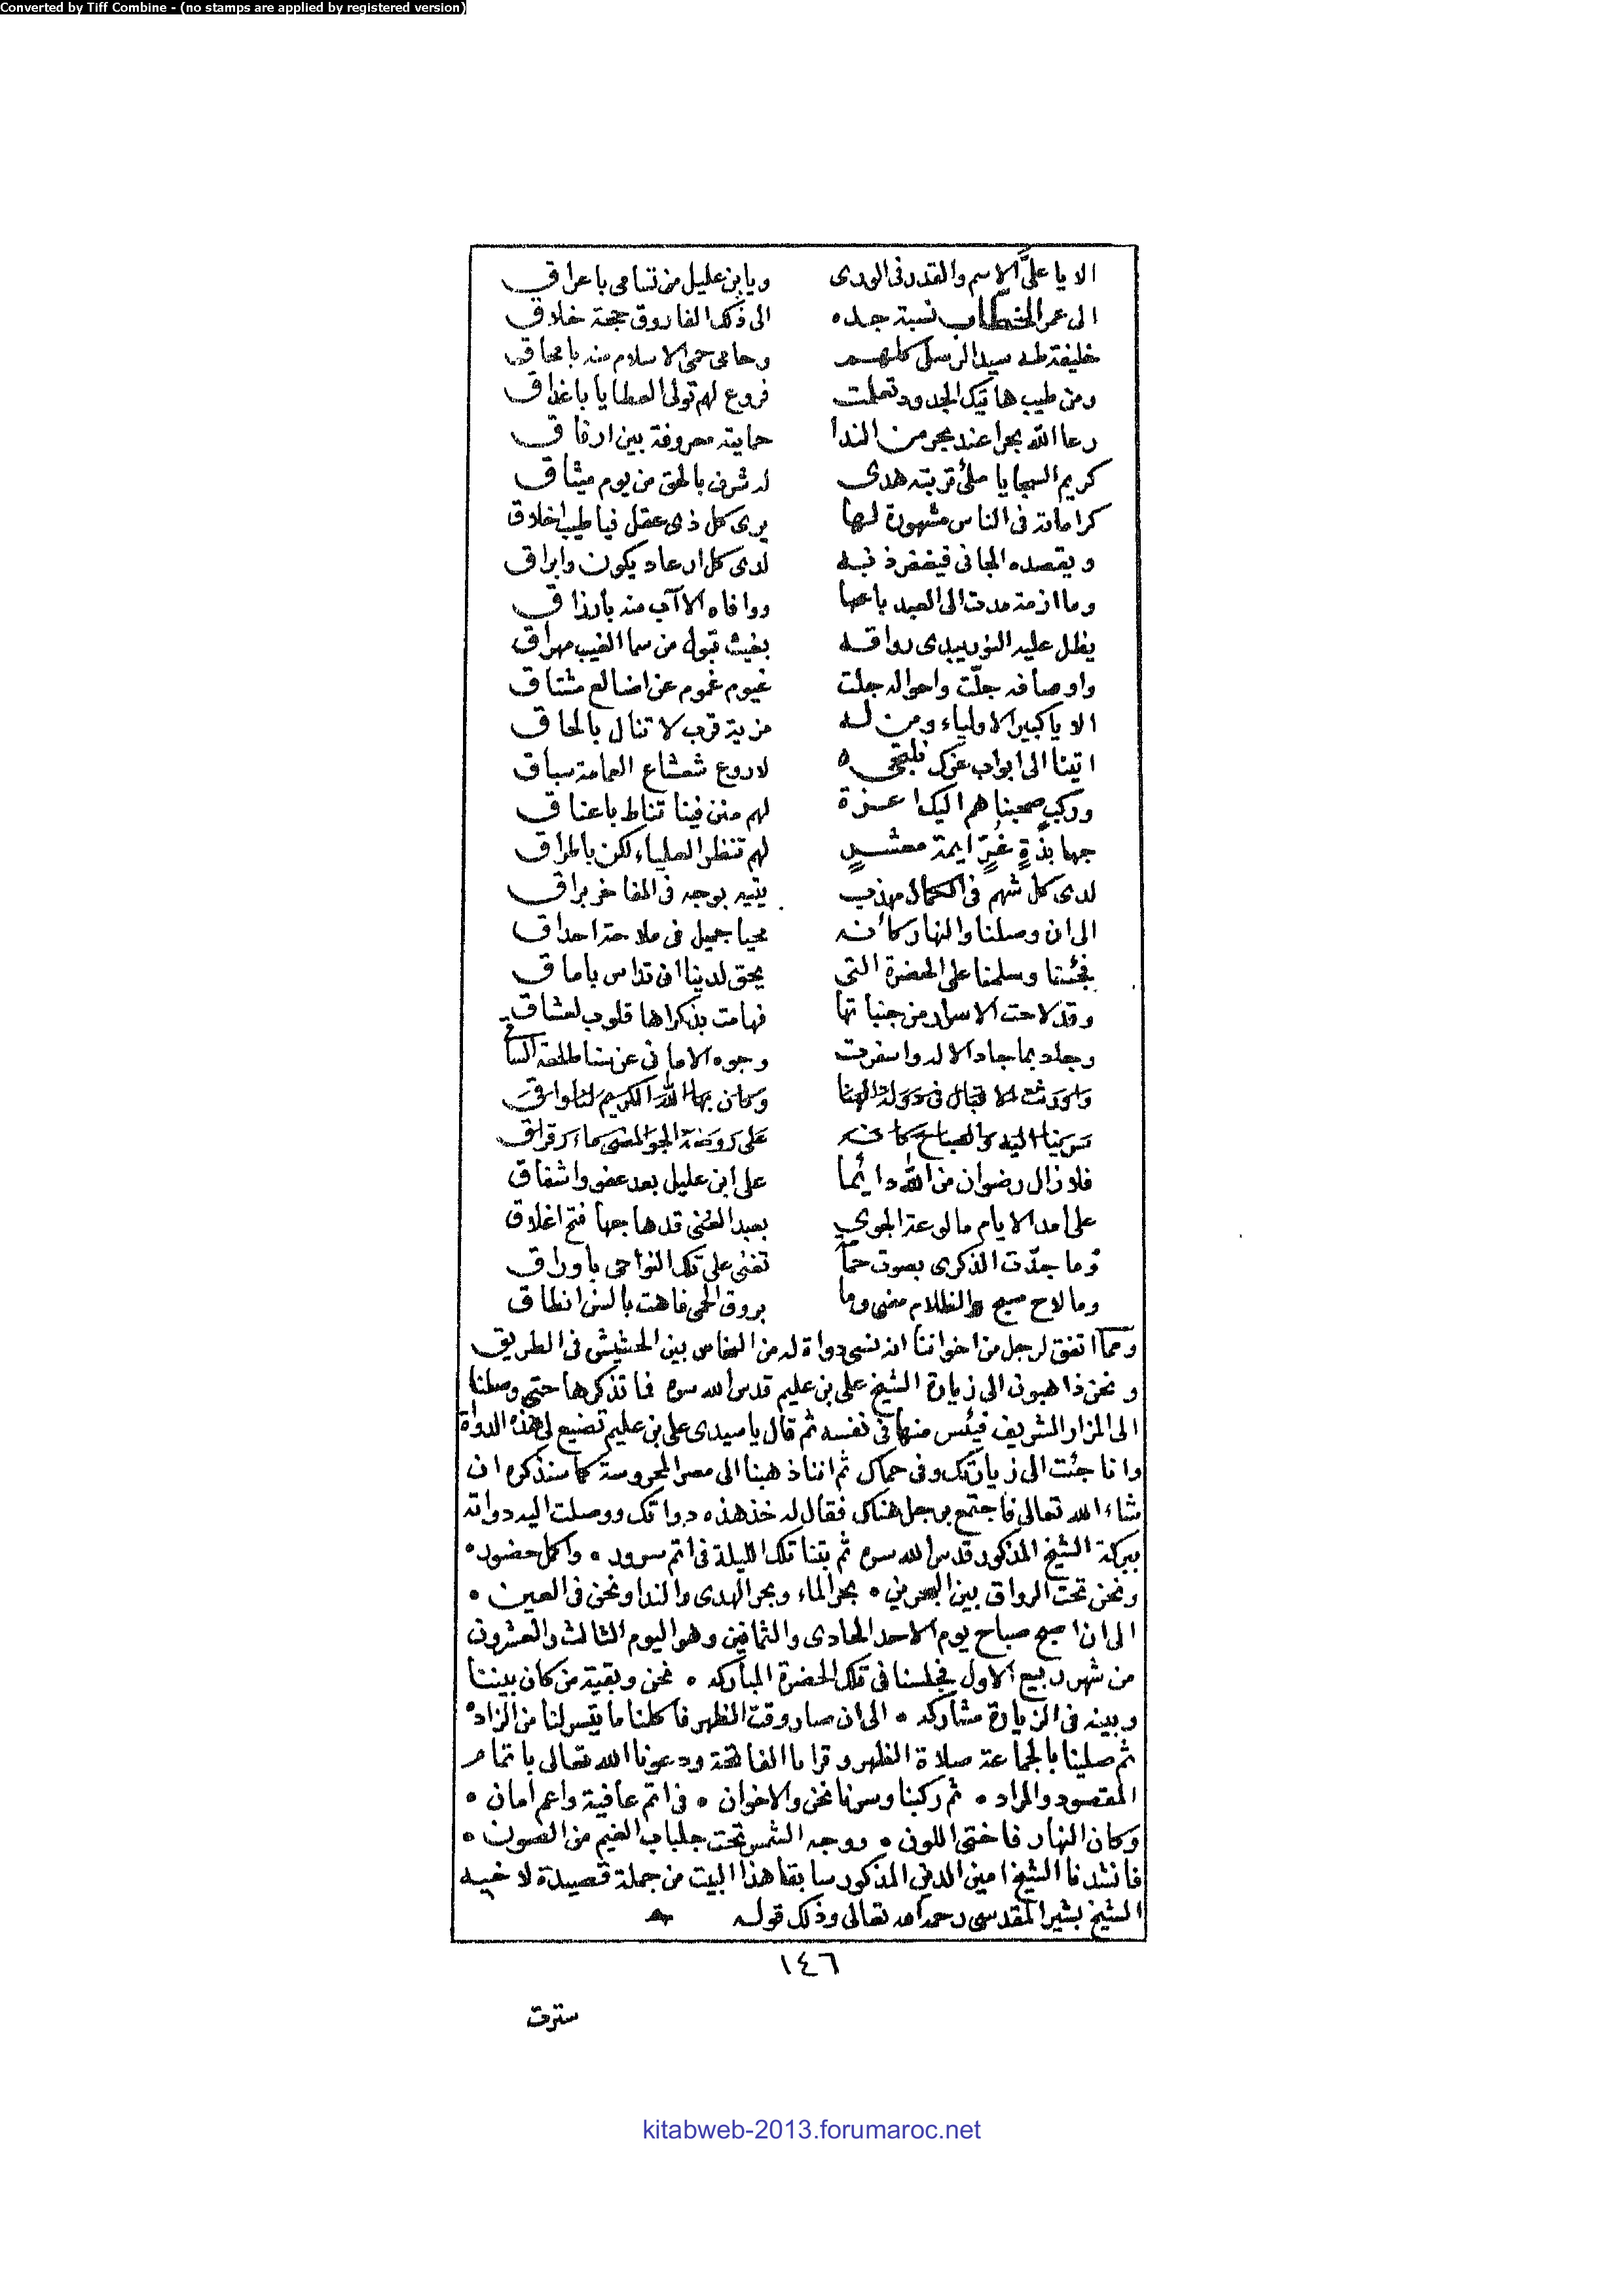 Converted by Tiff Combine - (no stamps are applied by registered version)
الا يا علىّ الاسم والقدر فى الورى ويا ابن عليل من تسامى باعراق
الى عمر الخطاب نسبة جده الى ذلك الفاروق حجة خلاق
خليفة طه سيد الرسل كلهم وحامى حمى الاسلام منه بامحاق
ومن طيب هاتيك الجدود تحملت فروع لهم تولى العطايا باغداق
رعا الله بحرا عند بحر من الندا حمايته معروفة بين ارفاق
كريم السجايا ملئ تربته هدى له شرف بالحق من يوم ميثاق
كراماته فى الناس مشهورة لها يرى كل ذى عقل فيا طيب اخلاق
ويقصده الجانى فيغفر ذنبه لدى كل ارعاد يكون وابراق
وما ازمة مدت الى العبد باعها ووافاه الا آب منه بارزاق
يظل عليه النور يبدى رواقه بغيث قبول من سما الغيب مهراق
واوصافه جلّت واحواله جلت غيوم غموم عن اضالع مشتاق
الا يا كبير الاولياء ومن له مزية قرب لا تنال بالحاق
اتينا الى ابواب عزك نلتجى لاروع شعشاع العمامة سباق
وركب صحبناهم اليك اعزة لهم منن فينا تناط باعناق
جهابذةٍ غرٍّ ايمة معشرٍ لهم تنظر العلياء لكن باطراق
لدى كل شهم فى الكمال مهذب يتيه بوجه فى المفاخر براق
الى ان وصلنا والنهار كانه محيا جميل فى ملاحة احداق
فجئنا وسلمنا على الحضرة التى يحق لدينا ان تداس باماق
وقد لاحت الاسرار من جنباتها فهامت بذكراها قلوب لعشاق
وجاد بما جاد الاله واسفرت وجوه الامانى عن سنا طلعة الساقى
الهنا وكان بها الله الكريم لنا واقى
سرينا اليه والصباح كانه على روضة الجو المضى ماء رقراق
فلا زال رضوان من الله دائما على ابن عليل بعد عفو واشفاق
على امد الايام ما لوعة الجوى بعبد الغنى قد هاجها فتح اغلاق
وما جدّت الذكرى بصوت حمامة تغنى على تلك النواحى باوراق
وما لاح صبح والظلام مضى وما بروق الحمى فاهت بالسن انطاق
ومما اتفق لرجل من اخواننا انه نسى دواة له من النحاس بين الحشيش فى الطريق
ونحن ذاهبون الى زيارة الشيخ على بن عليم قدس الله سره فما تذكرها حتى وصلنا
الى المزار الشريف فيئس منها فى نفسه ثم قال يا سيدى على بن عليم تضيع لى هذه الدواة
وانا جئت الى زيارتك وفى حماك ثم اننا ذهبنا الى مصر المحروسة كما سنذكره ان
شاء الله تعالى فاجتمع برجل هناك فقال له خذ هذه دواتك ووصلت اليه دواته
ببركة الشيخ المذكور قدس الله سره ثم بتنا تلك الليلة فى اتم سرور • واكمل حضور •
ونحن تحت الرواق بين البحرين • بحر الماء وبحر الهدى والندا ونحن فى العين •
الى ان اصبح صباح يوم الاحد الحادى والثمانين وهو اليوم الثالث والعشرون
من شهر ربيع الاول فجلسنا فى تلك الحضرة المباركه • نحن وبقية من كان بيننا
وبينه فى الزيارة مشاركه • الى ان صار وقت الظهر فاكلنا ما تيسر لنا من الزاد •
ثم صلينا بالجماعة صلاة الظهر وقرانا الفاتحة ودعونا الله تعالى باتمام
المقصود والمراد • ثم ركبنا وسرنا نحن والاخوان • فى اتم عافية واعم امان •
وكان النهار فاختى اللون • ووجه الشمس تحت جلباب الغيم من الصون •
فانشدنا الشيخ امين الدين المذكور سابقا هذا البيت من جملة قصيدة لاخيه
الشيخ بشير المقدسى رحمه الله تعالى وذلك قوله
١٤٦
سترت
kitabweb-2013.forumaroc.net